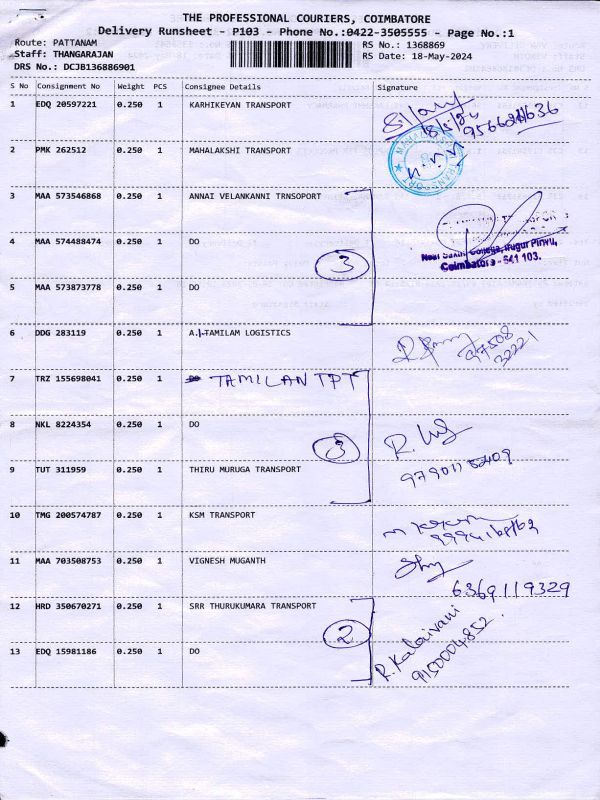 THE PROFESSIONAL COURIERS, COIMBATORE
Delivery Runsheet - P103 - Phone No.:0422-3505555 - Page No.:1
Route: PATTANAM RS No.: 1368869
Staff: THANGARAJAN RS Date: 18-May-2024
DRS No.: DCJB136886901
S No Consignment No Weight PCS Consignee Details Signature
1 EDQ 20597221 0.250 1 KARHIKEYAN TRANSPORT
18/5/24
2 PMK 262512 0.250 1 MAHALAKSHI TRANSPORT
TRANSPORT
3 MAA 573546868 0.250 1 ANNAI VELANKANNI TRNSOPORT
4 MAA 574488474 0.250 1 DO
3
Coimbatore - 641 103.
5 MAA 573873778 0.250 1 DO
6 DDG 283119 0.250 1 A.1.TAMILAM LOGISTICS
97508
32221
7 TRZ 155698041 0.250 1 TAMILAN TPT
8 NKL 8224354 0.250 1 DO
3
9 TUT 311959 0.250 1 THIRU MURUGA TRANSPORT
10 TMG 200574787 0.250 1 KSM TRANSPORT
11 MAA 703508753 0.250 1 VIGNESH MUGANTH
6369119329
12 HRD 350670271 0.250 1 SRR THURUKUMARA TRANSPORT
2
R. Kalaivani
9150004852
13 EDQ 15981186 0.250 1 DO